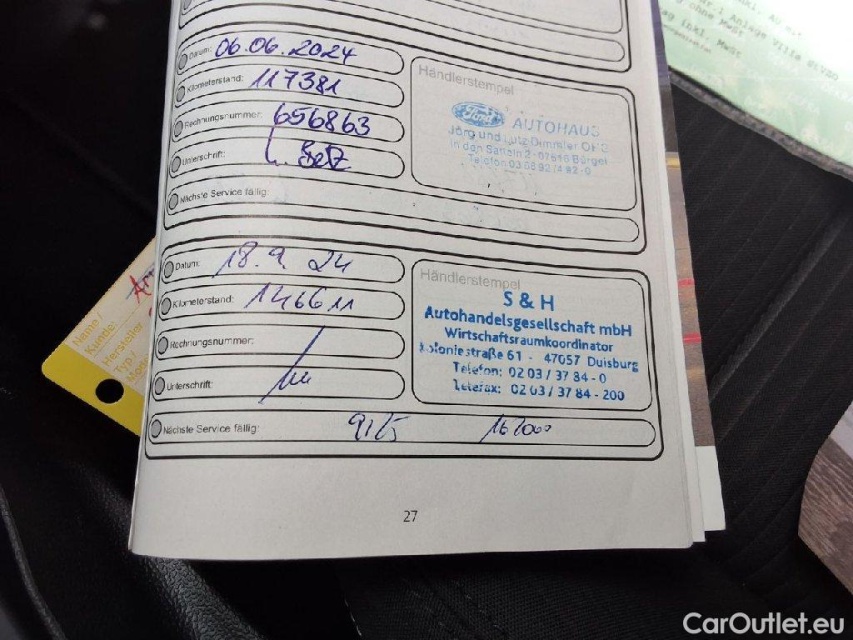 Datum: 06.06.2024
Kilometerstand: 117381
Rechnungsnummer: 656863
Unterschrift:
Nächste Service fällig:
Händlerstempel
Ford AUTOHAUS
Jörg und Lutz Dimmler OHG
In den Satteln 2 - 07616 Bürgel
Datum: 18.9.24
Kilometerstand: 146611
Rechnungsnummer:
Unterschrift:
Nächste Service fällig: 9/25
Händlerstempel
S & H
Autohandelsgesellschaft mbH
Wirtschaftsraumkoordinator
Koloniestraße 61 - 47057 Duisburg
Telefon: 02 03 / 37 84 - 0
Telefax: 02 03 / 37 84 - 200
27
Name /
Kunde:
Hersteller
CarOutlet.eu